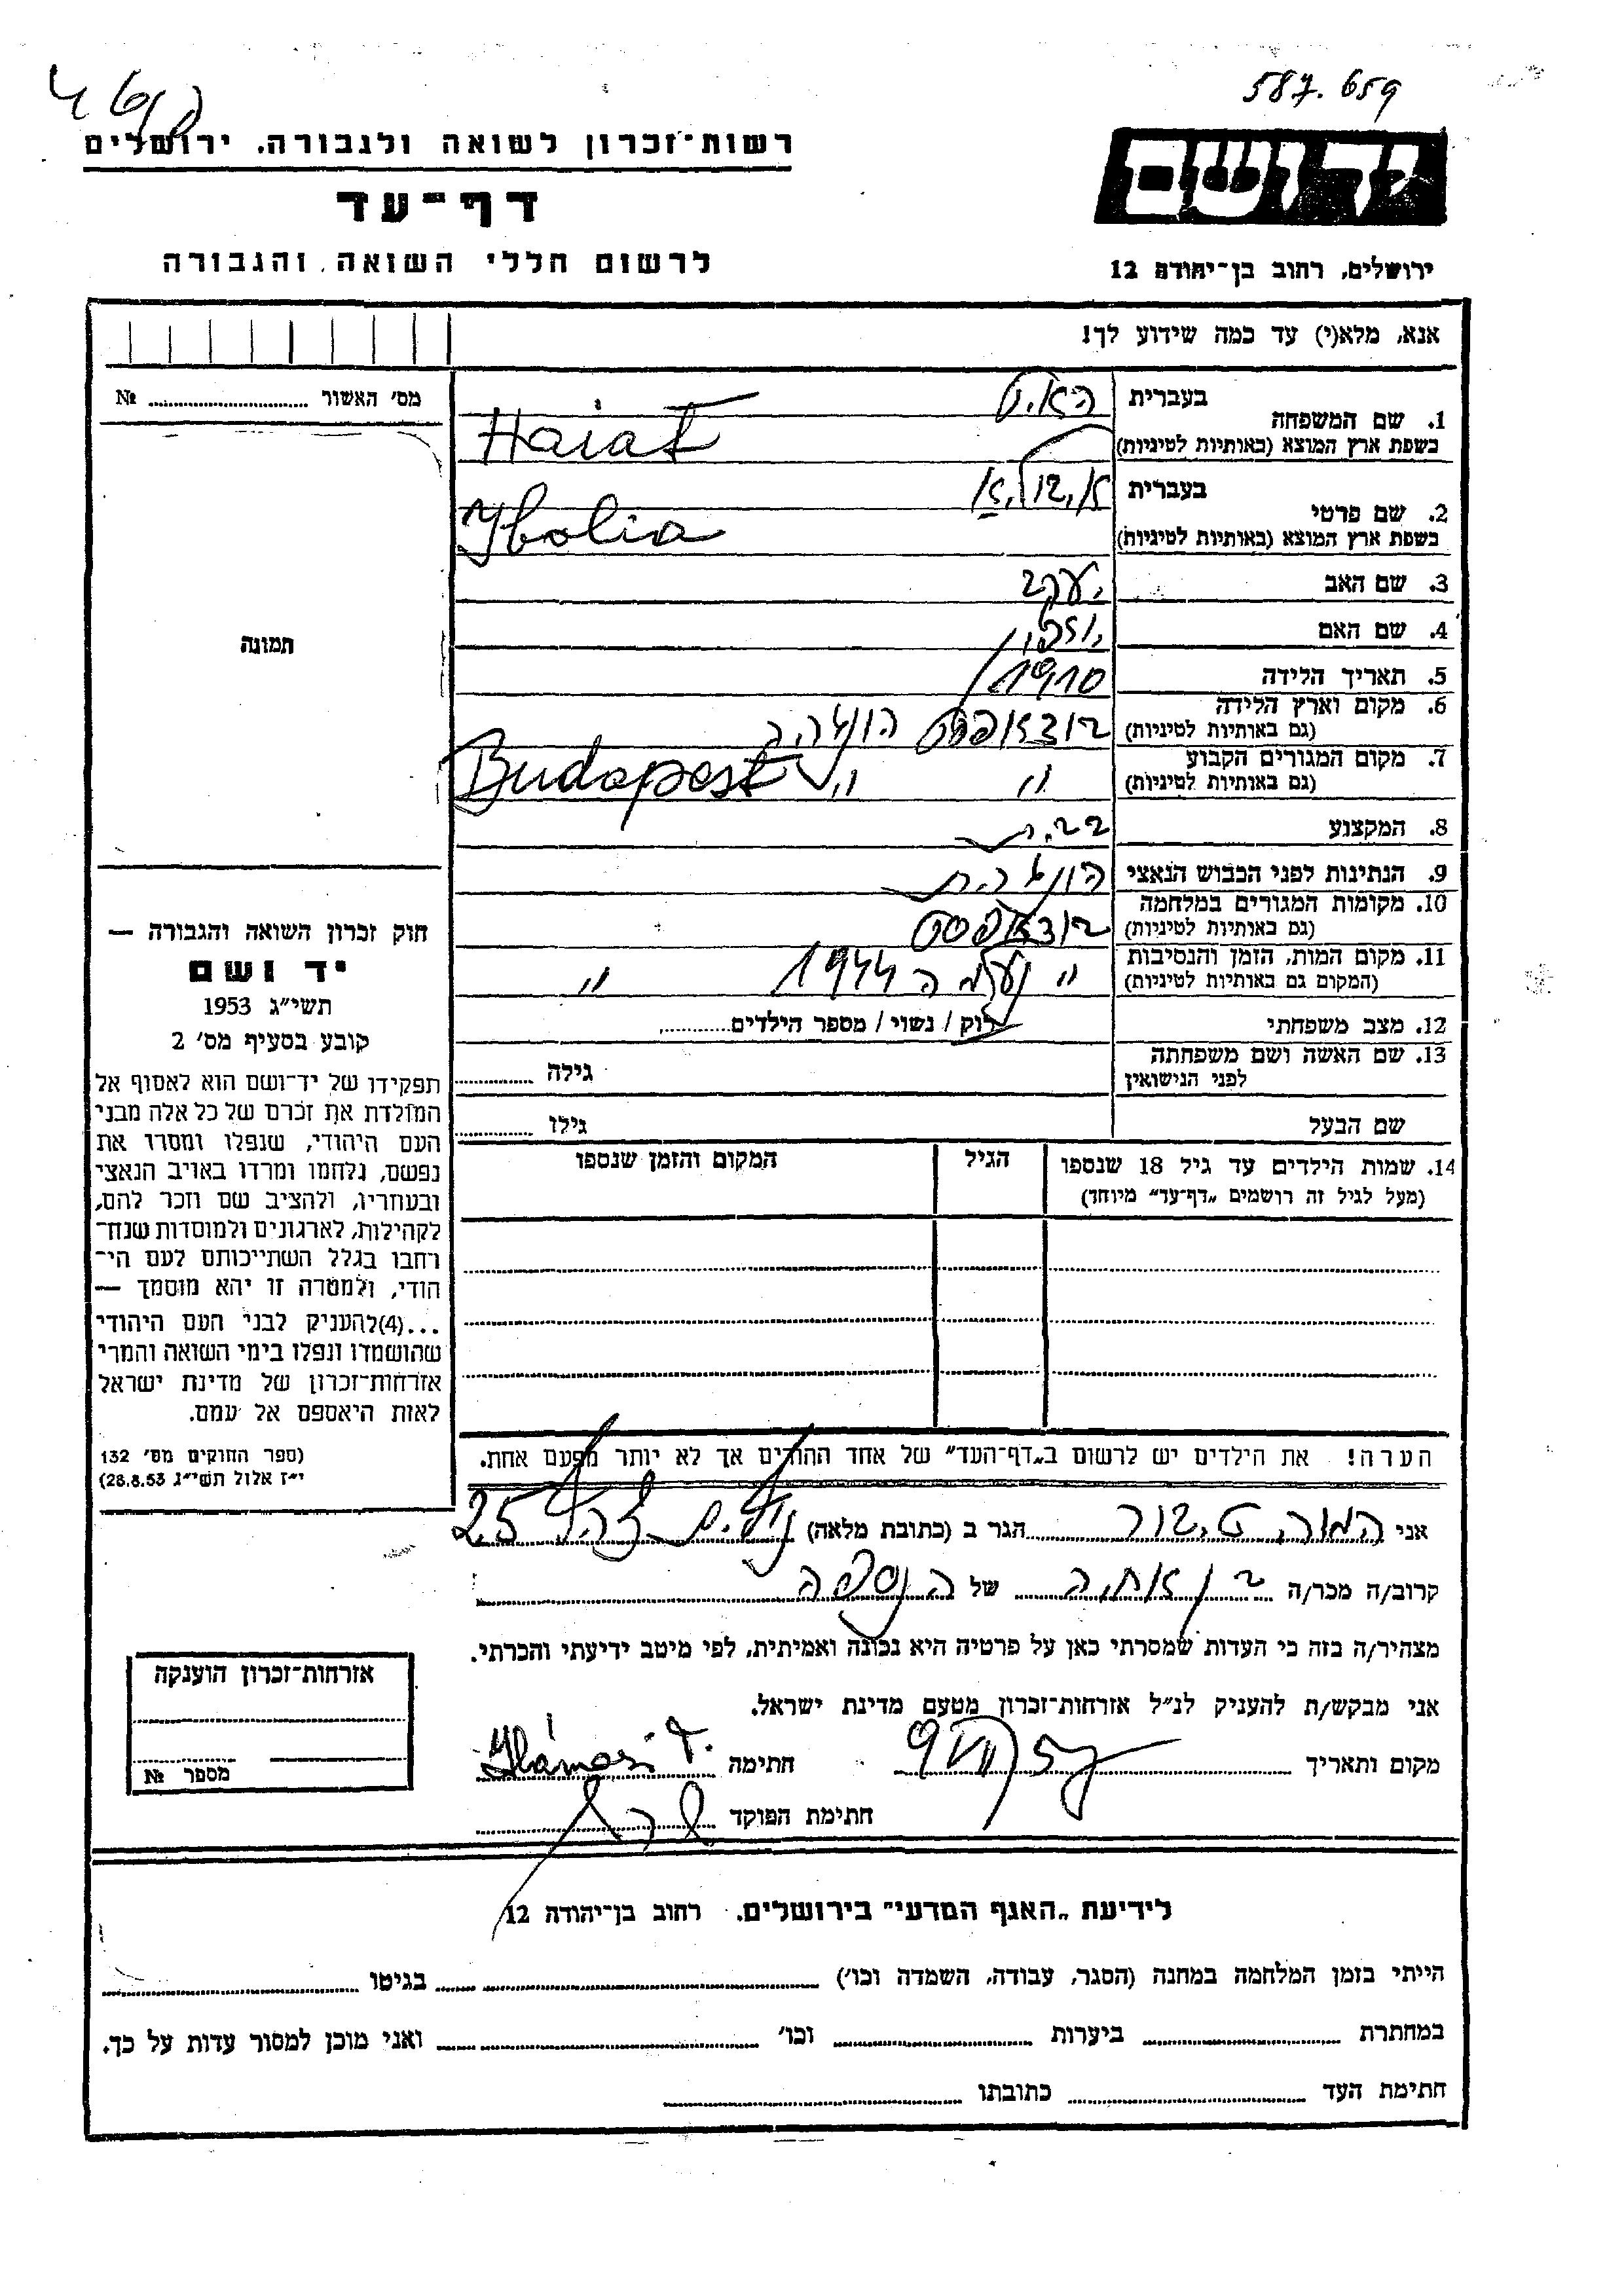 587.659
רשות-זכרון לשואה ולגבורה, ירושלים
יד ושם
דף-עד
לרשום חללי השואה והגבורה
ירושלים, רחוב בן-יהודה 12
אנא, מלא(י) עד כמה שידוע לך!
מס' האשור № ........
1. שם המשפחה
בעברית
האיט
בשפת ארץ המוצא (באותיות לטיניות)
Haiat
2. שם פרטי
בעברית
בשפת ארץ המוצא (באותיות לטיניות)
Ybolia
3. שם האב
יעקב
4. שם האם
5. תאריך הלידה
1910
6. מקום וארץ הלידה
(גם באותיות לטיניות)
בודאפסט הונגריה
7. מקום המגורים הקבוע
(גם באותיות לטיניות)
" " Budapest
8. המקצוע
9. הנתינות לפני הכבוש הנאצי
הונגרית
10. מקומות המגורים במלחמה
(גם באותיות לטיניות)
בודאפסט
11. מקום המות, הזמן והנסיבות
(המקום גם באותיות לטיניות)
" 1944 "
12. מצב משפחתי
רוק / נשוי / מספר הילדים........
13. שם האשה ושם משפחתה
לפני הנישואין
גילה ........
שם הבעל
גילו ........
14. שמות הילדים עד גיל 18 שנספו
(מעל לגיל זה רושמים "דף-עד" מיוחד)
הגיל
המקום והזמן שנספו
הערה! את הילדים יש לרשום ב"דף-העד" של אחד ההורים אך לא יותר מפעם אחת.
תמונה
חוק זכרון השואה והגבורה —
יד ושם
תשי"ג 1953
קובע בסעיף מס' 2
תפקידו של יד-ושם הוא לאסוף אל
המולדת את זכרם של כל אלה מבני
העם היהודי, שנפלו ומסרו את
נפשם, נלחמו ומרדו באויב הנאצי
ובעוזריו, ולהציב שם וזכר להם,
לקהילות, לארגונים ולמוסדות שנח-
רבו בגלל השתייכותם לעם הי-
הודי, ולמטרה זו יהא מוסמך —
...(4)להעניק לבני העם היהודי
שהושמדו ונפלו בימי השואה והמרי
אזרחות-זכרון של מדינת ישראל
לאות היאספם אל עמם.
(ספר החוקים מס' 132
י"ז אלול תשי"ג 28.8.53)
אני הגר ב (כתובת מלאה) 25
קרוב/ה מכר/ה בן אחיה של הנספה
מצהיר/ה בזה כי העדות שמסרתי כאן על פרטיה היא נכונה ואמיתית, לפי מיטב ידיעתי והכרתי.
אני מבקש/ת להעניק לנ"ל אזרחות-זכרון מטעם מדינת ישראל.
מקום ותאריך 9 VII 57 חתימה
חתימת הפוקד
אזרחות-זכרון הוענקה
מספר №
לידיעת "האגף המדעי" בירושלים, רחוב בן-יהודה 12
הייתי בזמן המלחמה במחנה (הסגר, עבודה, השמדה וכו') ........ בגיטו ........
במחתרת ........ ביערות ........ וכו' ........ ואני מוכן למסור עדות על כך.
חתימת העד ........ כתובתו ........